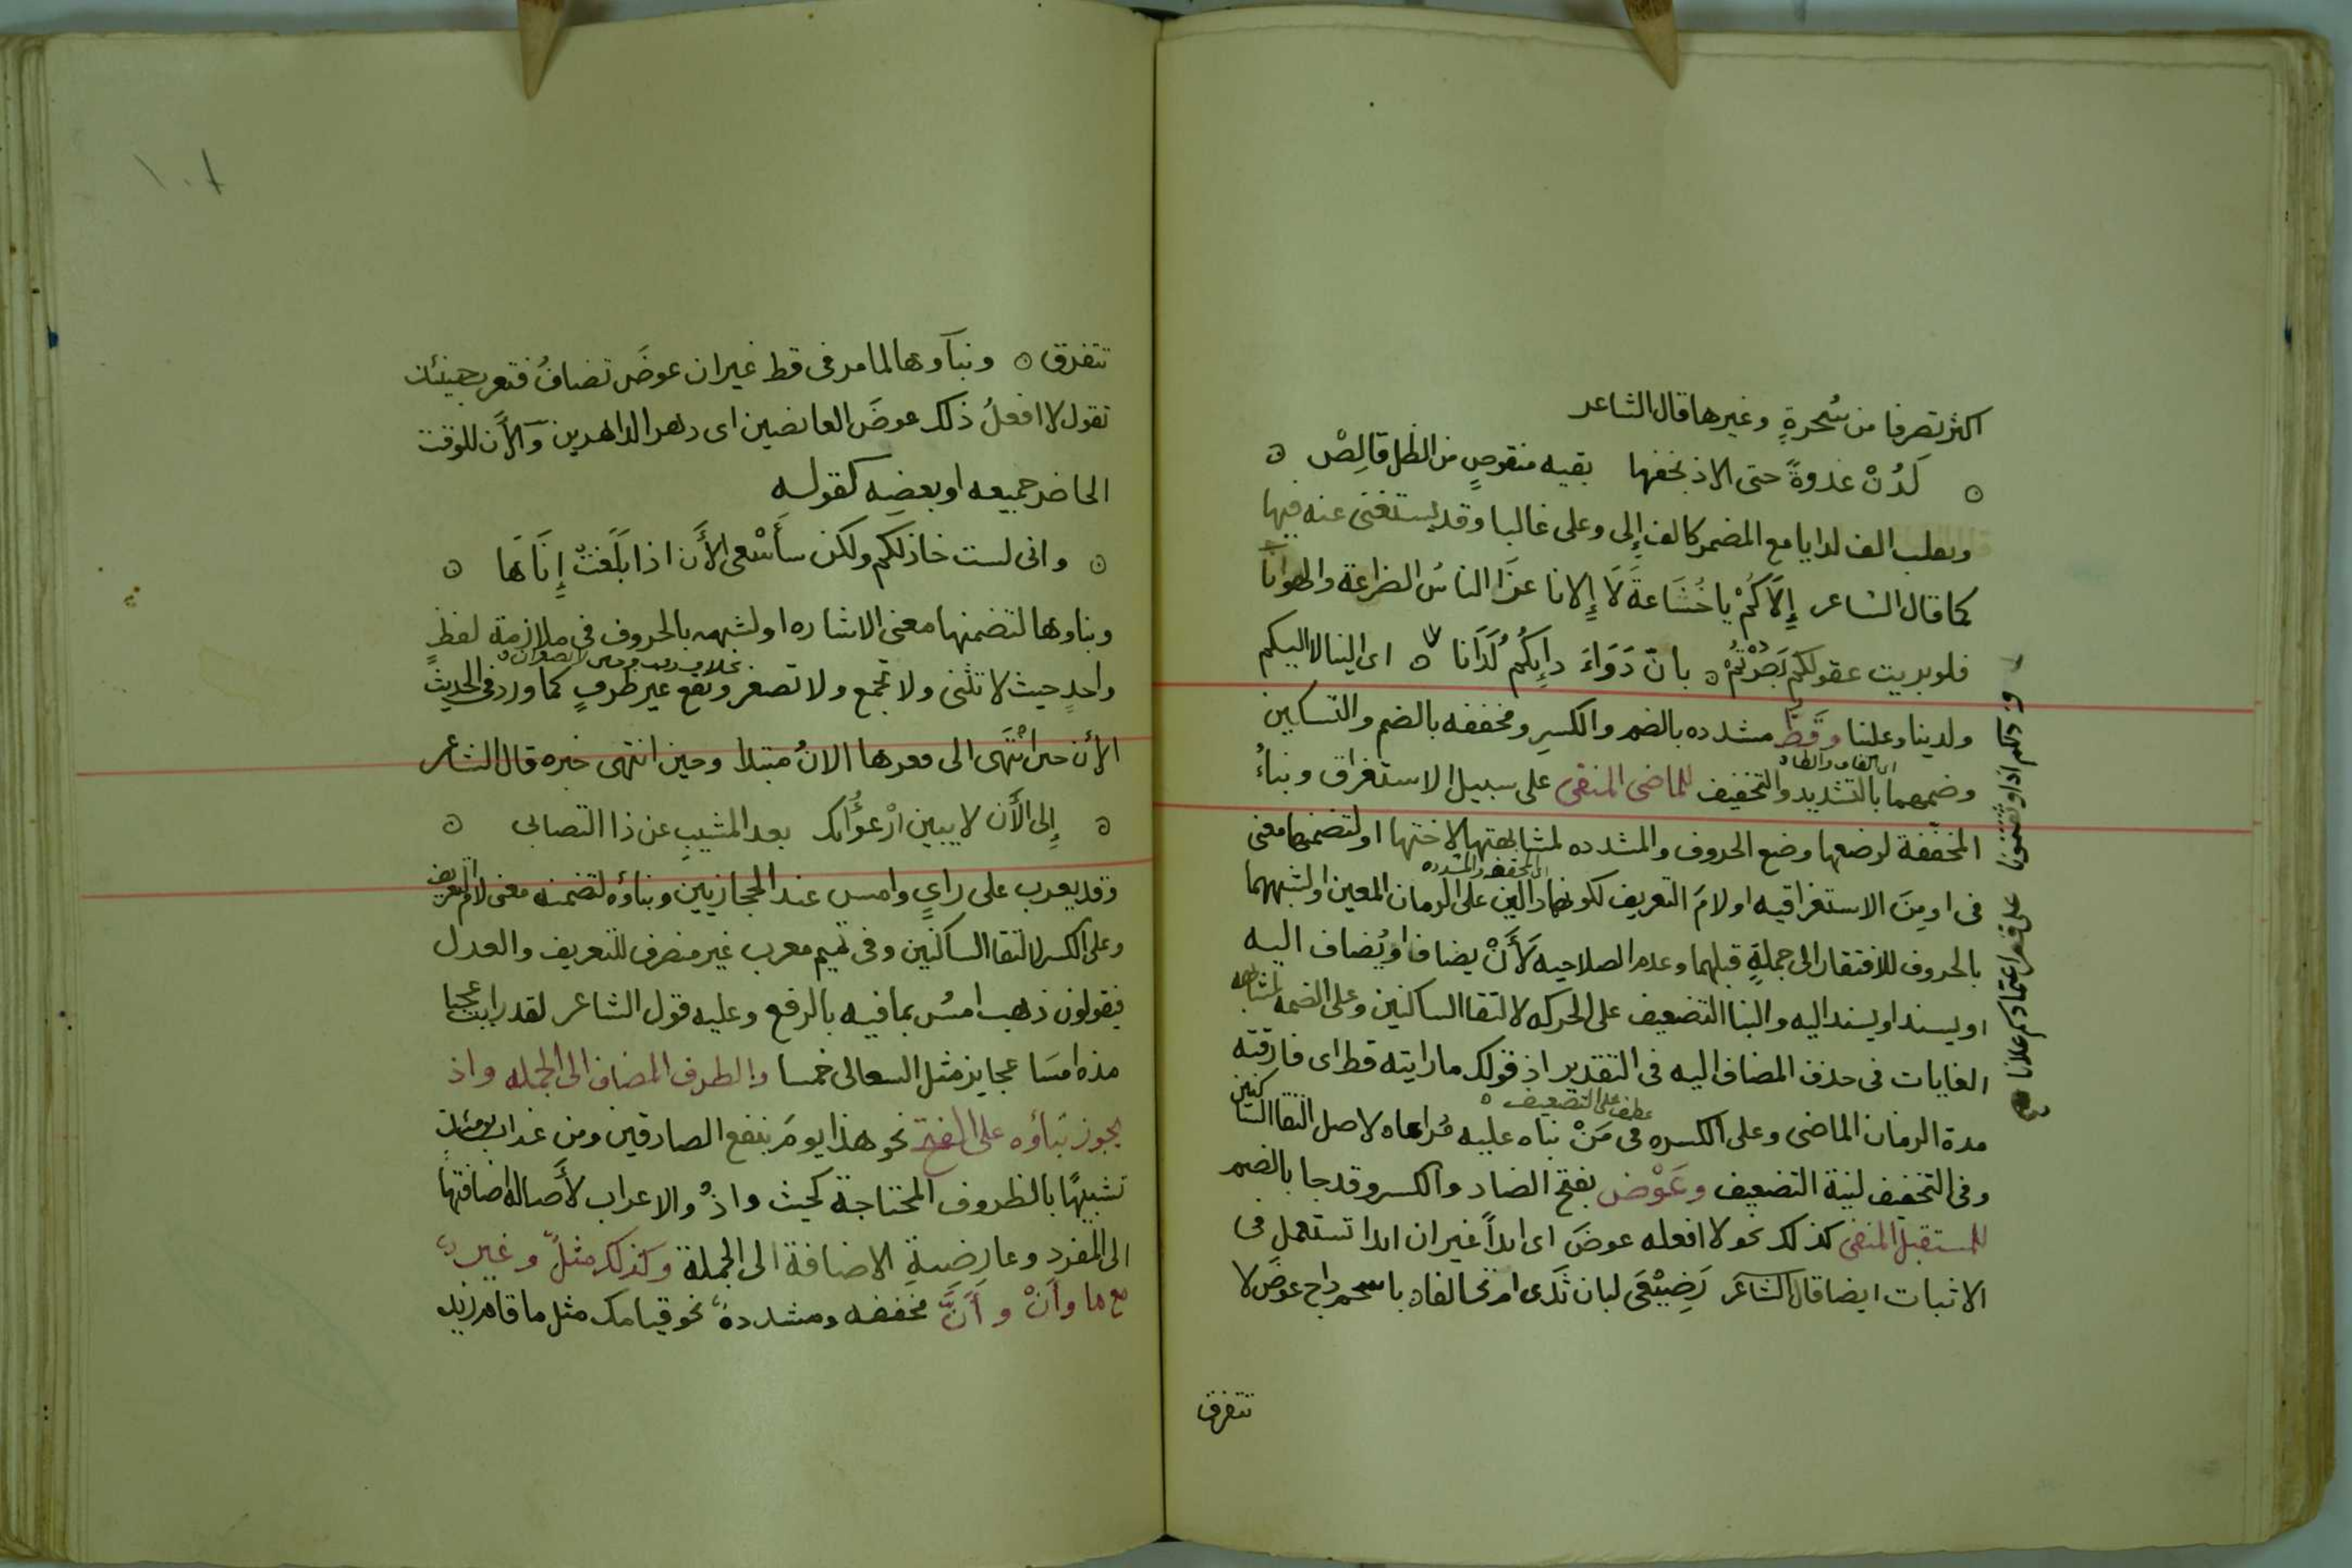 اكثر تصرفا من سُحرةٍ وغيرها قال الشاعر
لَدُنْ غدوةً حتى الاذ بخفها بقيه منقوصٍ من الظل قالِصْ
وبعلب الف لدايا مع المضمر كالف إلى وعلى غالبا وقد يستغنى عنه فيها
كما قال الشاعر إلاَكُمْ يا خُشَاعةَ لَا إلانا عزا الناسُ الضراعة والهوانآ
فلو بريت عقولكم بَصُرْتُمْ بان دَوَاءَ دايِكُم لَدَانا اى الينا لا اليكم
ولدينا وعلنا وقَطُّ مشدده بالضم والكسرِ ومخففه بالضم والتسكين
اى القاف والطاء
وضمهما بالتشديد والتخفيف للماضى المنفى على سبيل الاستغراق وبناءُ
المخففة لوضعها وضع الحروف والمشدده لمشابهتها لاختها او لتضمنها معنى
اى المخففه والمشدده
فى او مِنَ الاستغراقيه او لامَ التعريف لكونهما دالين على الزمان المعين او لشبههما
بالحروف للافتقار الى جملةٍ قبلهما وعدم الصلاحيه لأَنْ يضافا او يُضاف اليه
او يسند او يسند اليه والبنا التضعيف على الحركه لالتقا الساكنين وعلى الضمه لمشابهه
الغايات فى حذف المضاف اليه فى التقدير اذ قولك ما رايته قط اى فارقته
عطف على التضعيف
مدة الزمان الماضى وعلى الكسره فى مَنْ بناه عليه مُراعاه لاصل التقا الساكنين
وفى التخفيف لنية التضعيف وعَوْض بفتح الضاد والكسر وقد جا بالضم
للمستقبل المنفى كذلك نحو لا افعله عوضَ اى ابداً غير ان ابدا تستعمل فى
الاثبات ايضا قال الشاعر رَضِيْعَى لبان ثَدى ام تحالفاه باسحم داج عوضَ لا
تتفرق
تتفرق وبنآوها لما مر فى قط غير ان عوضَ تضافُ فتعرب حينئذ
تقول لا افعلُ ذلك عوضَ العايضين اى دهر الداهرين وآلأن للوقت
الحاضر جميعه او بعضِه كقوله
وانى لست خاذلكم ولكن سأَسْعى الأَن اذا بَلَغتْ إِنَاهَا
وبناوها لتضمنها معنى الاشاره او لشبهه بالحروف فى ملازمة لفظٍ
واحدٍ حيث لا تثنى ولا تجمع ولا تصغر وتقع غير ظرفٍ كما ورد فى الحديث
الأن حين انْتَهى الى قعرها الانُ مبتدا وحين انتهى خبره قال الشاعر
إلى الأَن لا يبين ارْعوُآك بعد المشيبِ عن ذا التصابى
وقد يعرب على رايٍ وامس عند الحجازيين وبناؤه لتضمنه معنى لام التعريف
وعلى الكسر لالتقا الساكنين وفى تميم معرب غير منصرف للتعريف والعدل
فيقولون ذهب امسُ بما فيه بالرفع وعليه قول الشاعر لقد رايت عجبا
مذه امسَا عجايز مثل السعالى خمسا والظرف المضاف الى الجمله واذ
يجوز بناؤه على الفتح نحو هذا يومَ ينفع الصادقين ومن عذاب يومئذٍ
تشبيهًا بالظروف المحتاجة كحيث واذْ والاعراب لأَصاله اضافتها
الى المفرد وعارِضيةِ الاضافة الى الجملة وكذلك مثلُ وغيرُ
مع ما وأَنْ و أَنَّ مخففه ومشدده نحو قيامك مثل ما قام زيد